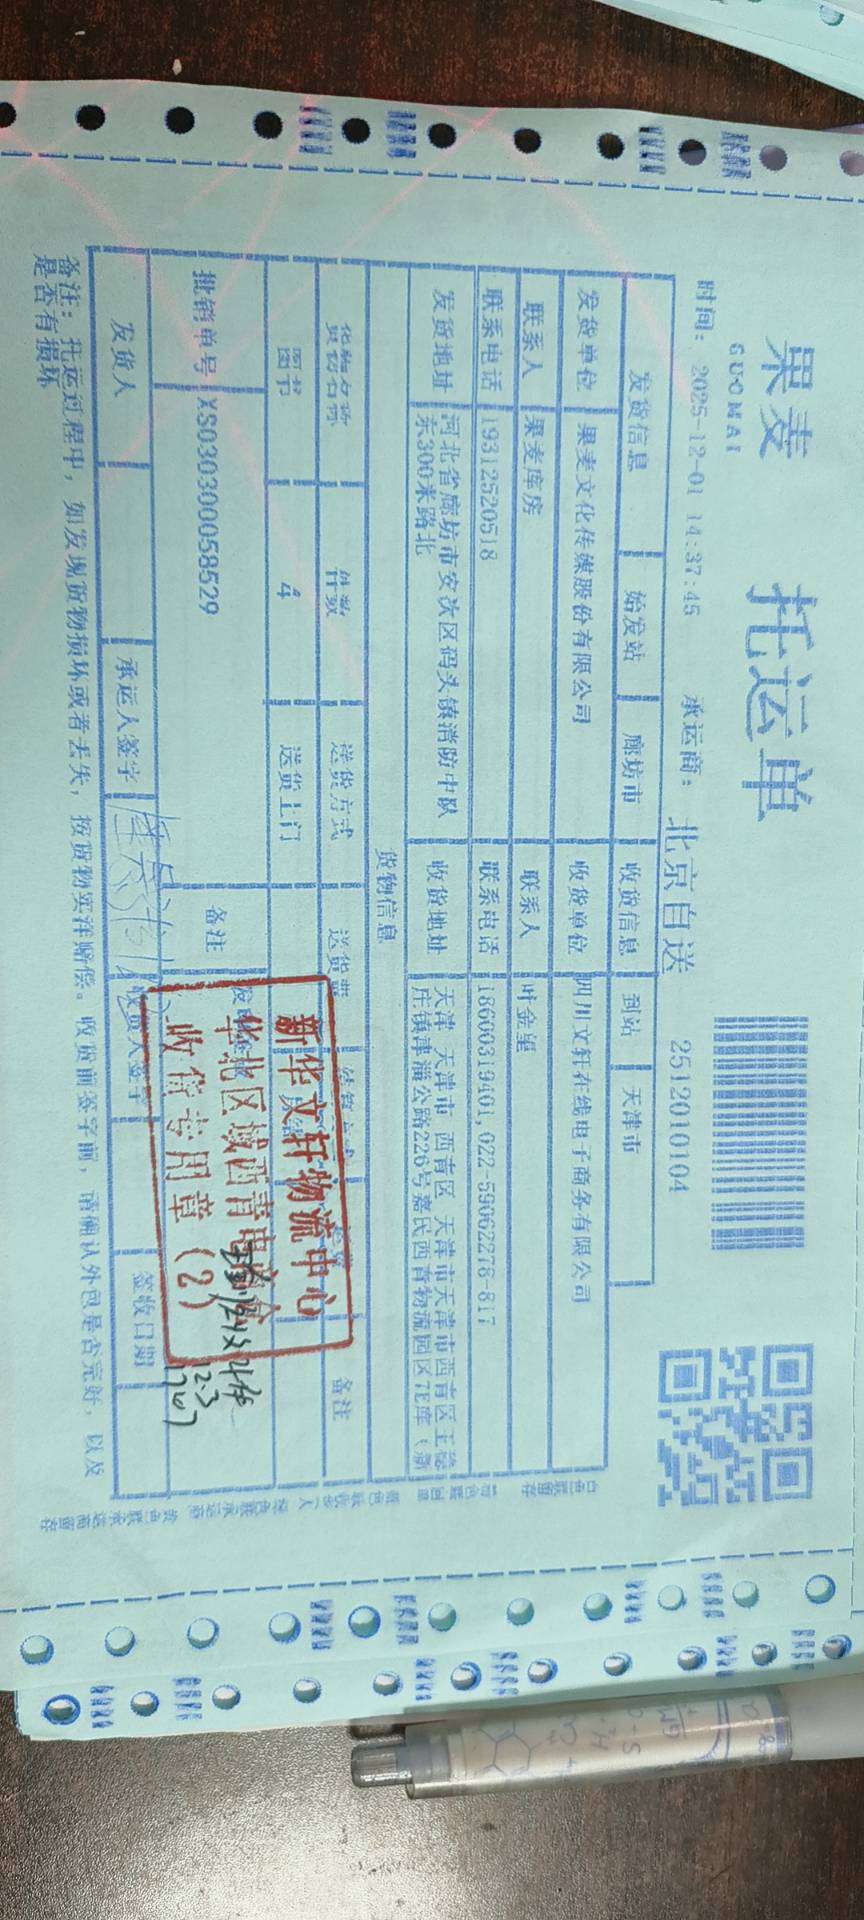 果麦
GUOMAI
托运单
时间: 2025-12-01 14:37:45 承运商: 北京自送 2512010104
发货信息 始发站 廊坊市 收货信息 到站 天津市
发货单位 果麦文化传媒股份有限公司 收货单位 四川文轩在线电子商务有限公司
联系人 果麦库房 联系人 叶金望
联系电话 19312520518 联系电话 18600319401,022-59062278-817
发货地址 河北省廊坊市安次区码头镇消防中队东300米路北 收货地址 天津 天津市 西青区 天津市天津市西青区王
庄镇津淄公路226号嘉民西青物流园区7E库(新
货物信息
货物名称 件数 送货方式 送货 备注
图书 4 送货上门
批销单号 XS030300058529 备注
发货人 承运人签字 收货人签字 签收日期
新华文轩物流中心
华北区域西青电商仓
收货专用章(2)
12.3
备注: 托运过程中, 如发现货物损坏或者丢失, 按货物实洋赔偿。收货前签字前, 请确认外包是否完好, 以及
是否有损坏